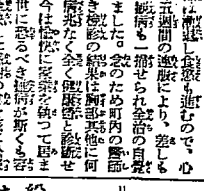 は漸退し食慾も進むので、心
五週間の連服により、差しも
観病も一掃せられ全治の自覚
ました。念のため町内の醫師
き檢診の結果は胸部其他に何
病兆なく全く健康體と診斷せ
今は愉快に業務を執つて居
世に恐るべき肺病が斯くも容